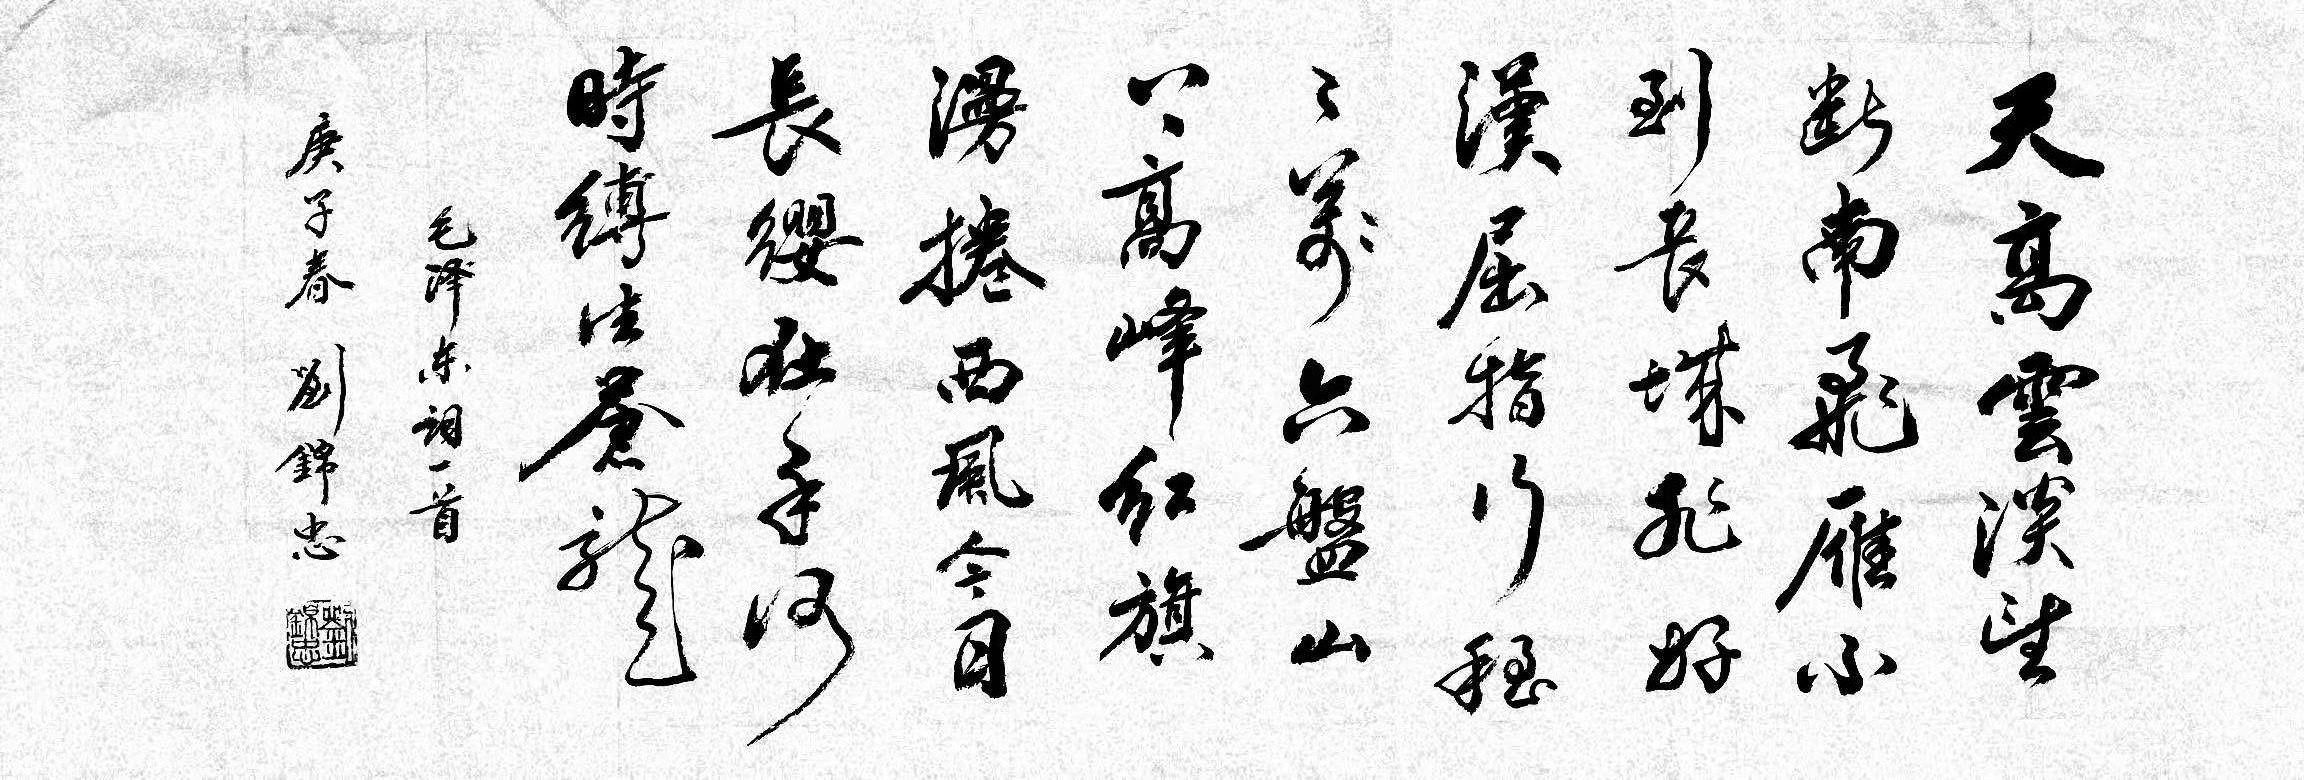 天高雲淡望
断南飛雁不
到長城非好
漢屈指行程
二萬六盤山
上高峰紅旗
漫捲西風今日
長纓在手何
時縛住蒼龍
毛泽东词一首
庚子春 劉錦忠
劉錦忠